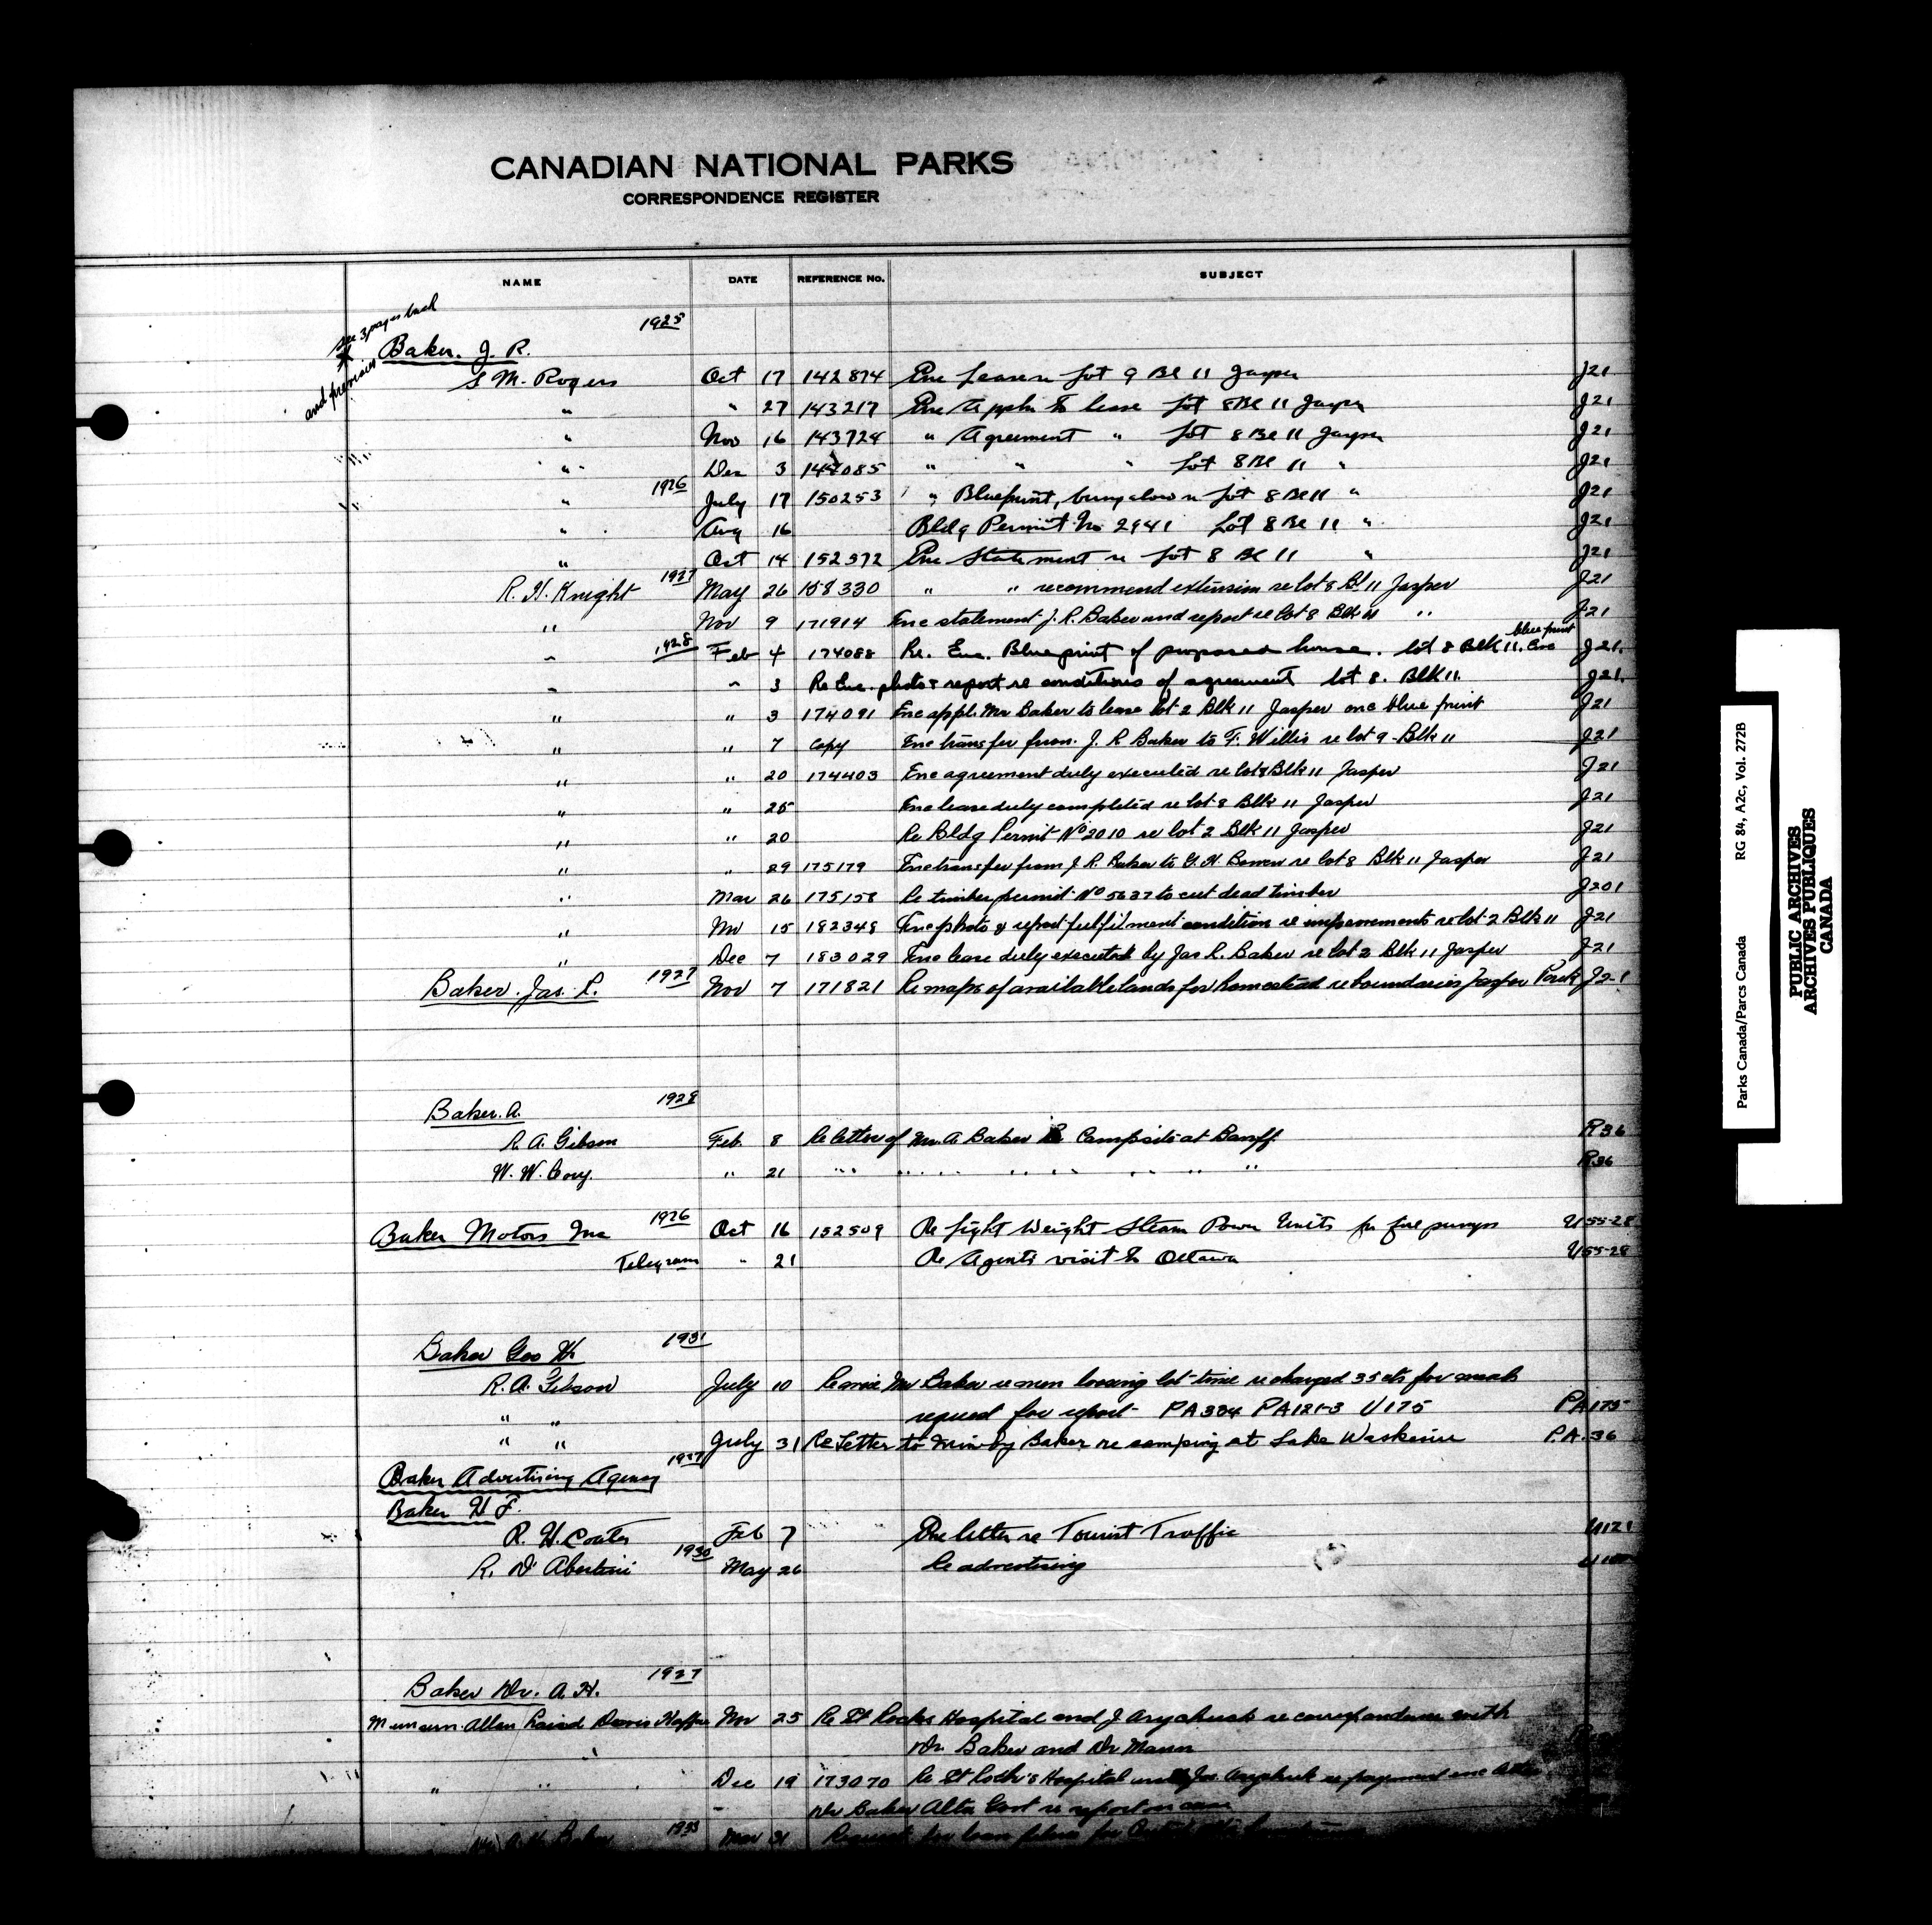 CANADIAN NATIONAL PARKS
CORRESPONDENCE REGISTER
NAME DATE REFERENCE No. SUBJECT
see 3 pages back
and previous
1925
Baker. J. R.
S M. Rogers Oct 17 142874 Enc Lease re Lot 9 Bl 11 Jasper J21
" " 27 143217 Enc Appln to lease Lot 8 Bl 11 Jasper J21
" Nov 16 143724 " Agreement " Lot 8 Bl 11 Jasper J21
" Dec 3 144085 " " " Lot 8 Bl 11 " J21
1926
" July 17 150253 " Blueprint, bungalow re Lot 8 Bl 11 " J21
" Aug 16 Bldg Permit No 2941 Lot 8 Bl 11 " J21
" Oct 14 152372 Enc Statement re Lot 8 Bl 11 " J21
R. H. Knight 1927 May 26 158330 " " recommend extension re lot 8 Bl 11 Jasper J21
" Nov 9 171914 Enc statement J. R. Baker and report re lot 8 Blk 11 " J21
" 1928 Feb 4 174088 Re. Enc. Blue print of proposed house. lot 8 Blk 11. Enc blue print J21.
" " 3 Re Enc. photo & report re conditions of agreement lot 8. Blk 11. J21.
" " 3 174091 Enc appl. Mr Baker to lease lot 2 Blk 11 Jasper enc blue print J21
" " 7 Copy Enc transfer from J. R Baker to F. Willis re lot 9 Blk 11 J21
" " 20 174403 Enc agreement duly executed re lot 8 Blk 11 Jasper J21
" " 25 Enc lease duly completed re lot 8 Blk 11 Jasper J21
" " 20 Re Bldg Permit No 2010 re lot 2 Blk 11 Jasper J21
" " 29 175179 Enc transfer from J. R. Baker to G. H. Bowen re lot 8 Blk 11 Jasper J21
" Mar 26 175158 Re timber permit No 5637 to cut dead timber J201
" Nov 15 182348 Enc photo & report fulfilment condition re improvements re lot 2 Blk 11 J21
" Dec 7 183029 Enc lease duly executed by Jas R. Baker re lot 2 Blk 11 Jasper J21
Baker. Jas. R. 1927 Nov 7 171821 Re maps of available lands for homestead re boundaries Jasper Park J2-1
Baker. A. 1928
R. A. Gibson Feb 8 Re letter of Mr. A Baker Re Campsite at Banff R36
W. W. Cory. " 21 " " " " " " " R36
Baker Motors Inc 1926 Oct 16 152509 Re Light Weight Steam Power Units for fire pumps U55-28
Telegram " 21 Re Agents visit to Ottawa U55-28
Baker Geo H. 1931
R. A. Gibson July 10 Re Mr Baker re men loosing lot time re charged 35 cts for meals
" " request for report PA334 PA121-3 U175 PA175
" " July 31 Re Letter to by Baker re camping at Lake Waskesiu P.A. 36
1927
Baker Advertising Agency
Baker H F.
R. H. Coats Feb 7 Enc letter re Tourist Traffic U121
R. D' 1930 May 26 Re advertising
Baker Dr. A. H. 1927
Allen Laird Davis Nov 25 Re St Rocks Hospital and J re correspondence with
Dr. Baker and Dr Mann
" " " Dec 19 173070 Re St Roch's Hospital re payment enc
Dr Baker Alta Govt re report on case
A. H. Baker 1933 Mar 31 Request for loan films for
Parks Canada/Parcs Canada RG 84, A2c, Vol. 272B
PUBLIC ARCHIVES
ARCHIVES PUBLIQUES
CANADA